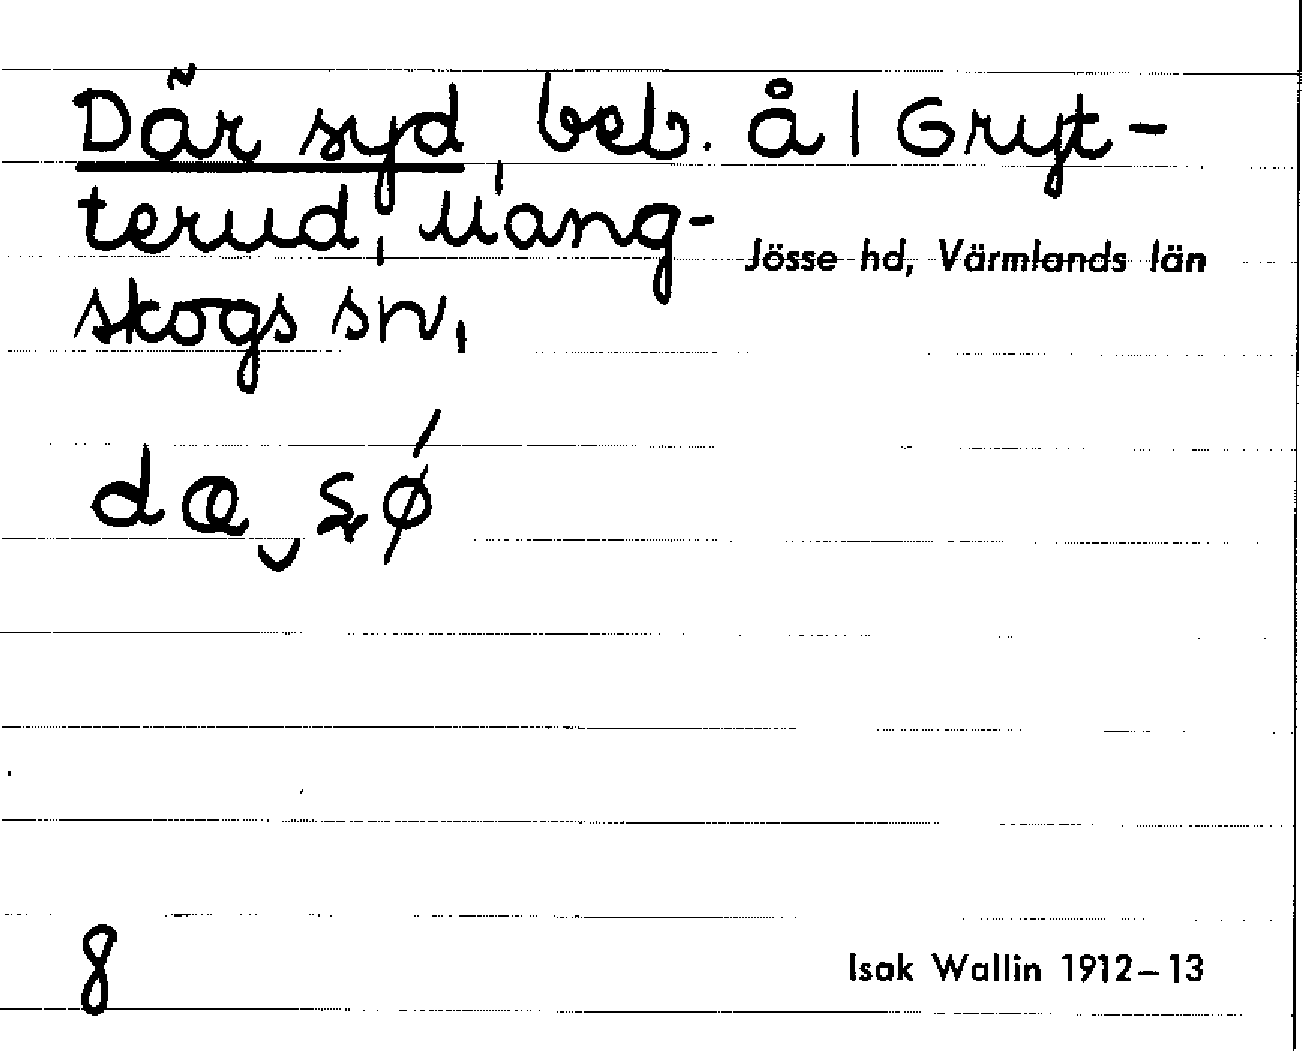 Där syd, beb. å 1 Gryt-
terud, Mang-
skogs sn,
Jösse hd, Värmlands län
8
Isak Wallin 1912–13